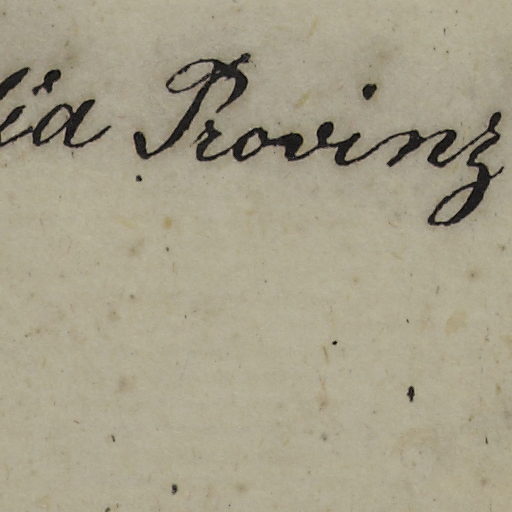 ia Provinz